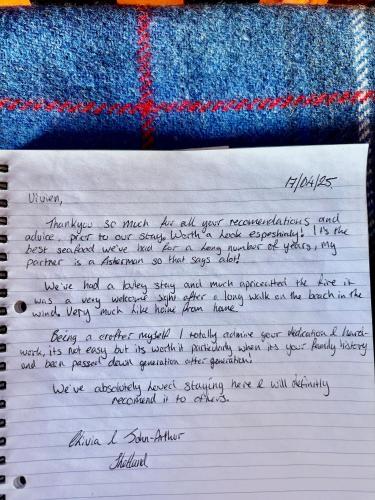 17/04/25
Vivien,
Thankyou so much for all your recomendations and
advice, prior to our stay. Worth a Look espeshinly! It's the
best seafood we've had for a long number of years, my
partner is a fisterman so that says alot!
We've had a lovley stay and much apricetted the fire it
was a very welcome sight after a long walk on the beach in the
wind. Very much like home from home.
Being a crofter myself I totally admire your dedication & hard-
work, its not easy but its worth it particularly when its your family history
and been passed down generation after generation!
We've absolutely loved staying here & will definitly
recomend it to others.
& John-Arthur
Shetland